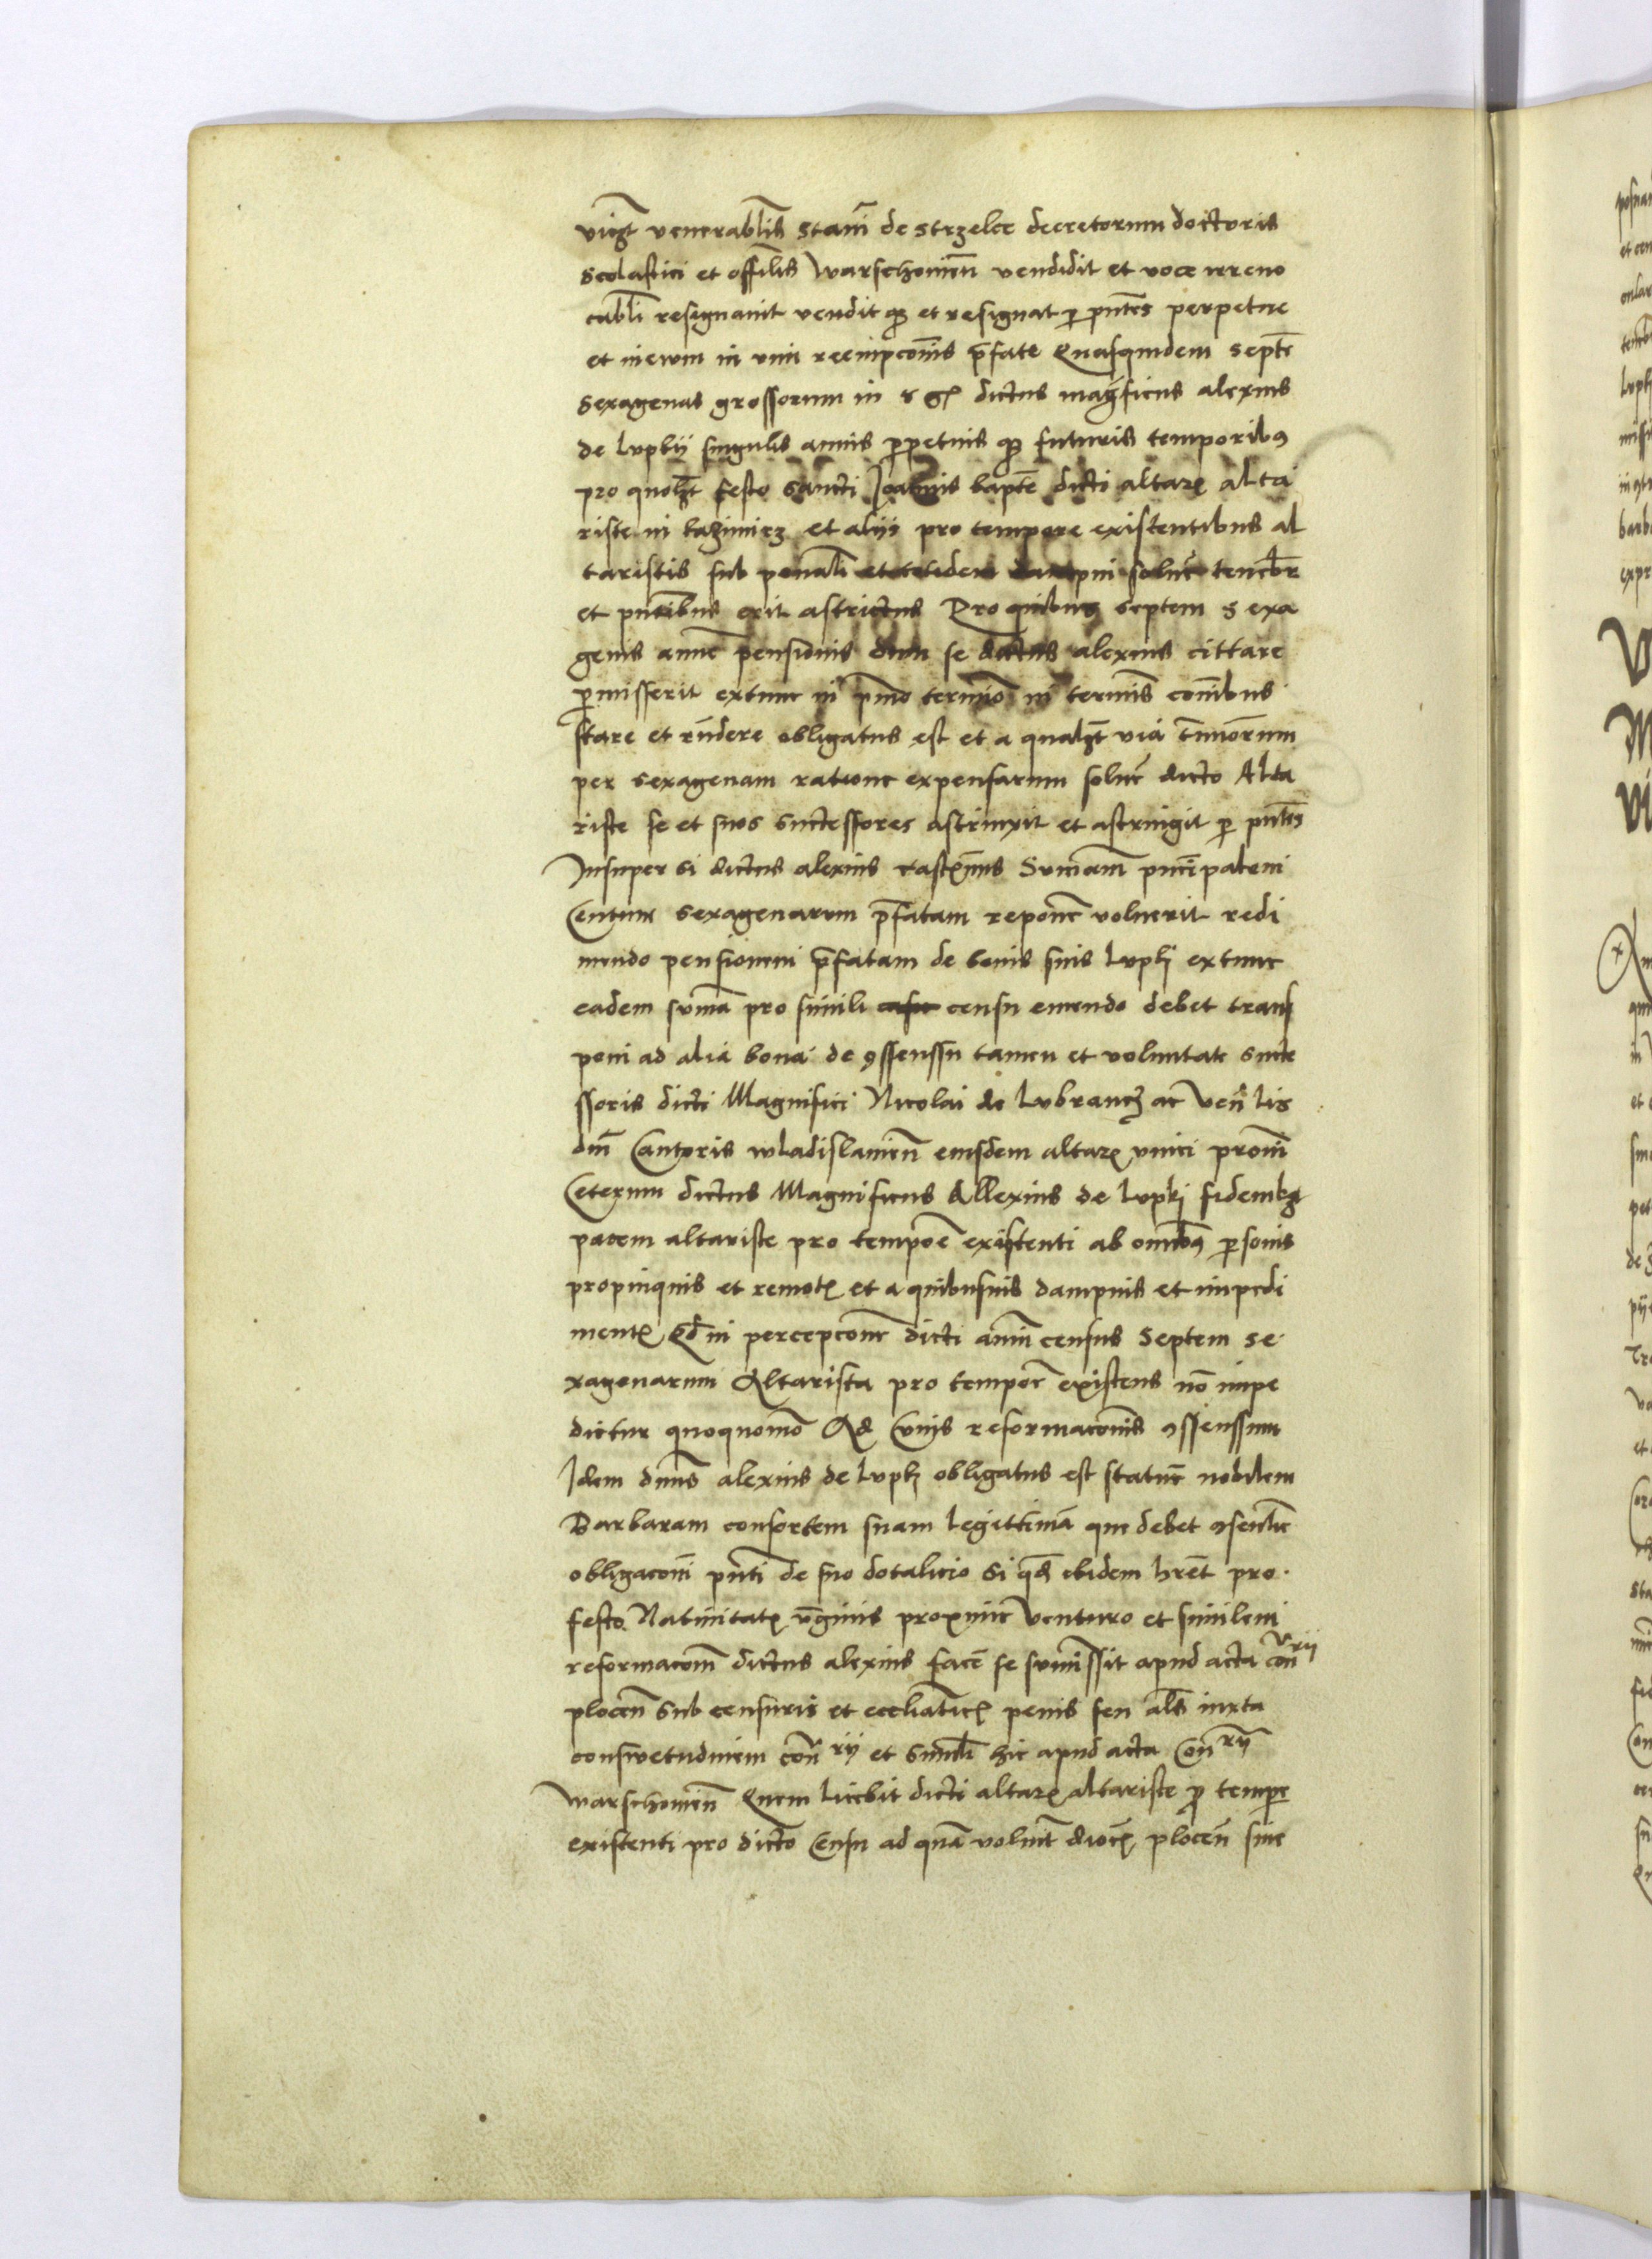 vigt venerablis Stani de Strzelce decretorum doctoris
Scolastici et offilis Warschouien vendidit et voce irreuo
cabli resignauit vendit qz et resignat p pntes perpetue
et in ewm in vim reempconis pfate Quasquidem Septe
Sexagenas grossorum in dictus magficus alexius
de lupky singulis annis ppetuis qz futuris temporibus
pro quolzt festo Sancti Joannis bapte dicti altaris alta
riste in kazimirz et aliis pro tempore existentibus al
taristis sub penali et totidem dampni solue tenebr
et pntibus erit astrictus Pro quibus septem sexa
genis annue pensionis dum se dictus alexius cittare
pmisserit extunc in pmo termio in termis conibus
stare et rndere obligatus est et a qualzt via tmiorum
per sexagenam ratione expensarum solue dicto Alta
riste se et suos successores astrinxit et astringit p pntes
Insuper si dictus alexius Sumam pncipalem
Centum sexagenarum pfatam repone voluerit redi
mendo pensionem pfatam de bonis suis lupky extunc
eadem suma pro simili censu emendo debet trans
poni ad alia bona de 9ssenssu tamen et voluntate succe
ssoris dicti Magnifici Nicolai de Lubrancz ac Venlis
dni Cantoris wladislauien eiusdem altaris vnici proui
Ceterum dictus Magnificus Allexius de lupky fidemqz
pacem altariste pro tempore existenti ab omnibus psonis
propinquis et remotis et a quibusuis dampnis et impedi
mentis Qd in percepcone dicti anui census Septem se
xagenarum Altarista pro tempore existens no impe
dietur quoquomo Ad Cuius reformaconis 9ssenssum
Idem dnus alexius de lupky obligatus est statue nobilem
Barbaram consortem suam legittima que debet 9sentire
obligaconi pnti de suo dotalicio si qd ibidem hret pro
festo Natiuitatis vginis proxime venturo et similem
reformacom dictus alexius face se sumissit apud acta conrii
plocen Sub censuris et eccliaticis penis seu als iuxta
conswetudinem conrii et simili hic apud acta Conrii
Warschouien Quem licebit dicti altaris altariste p tempe
existenti pro dicto Censu ad qua voluit diocis plocen siue